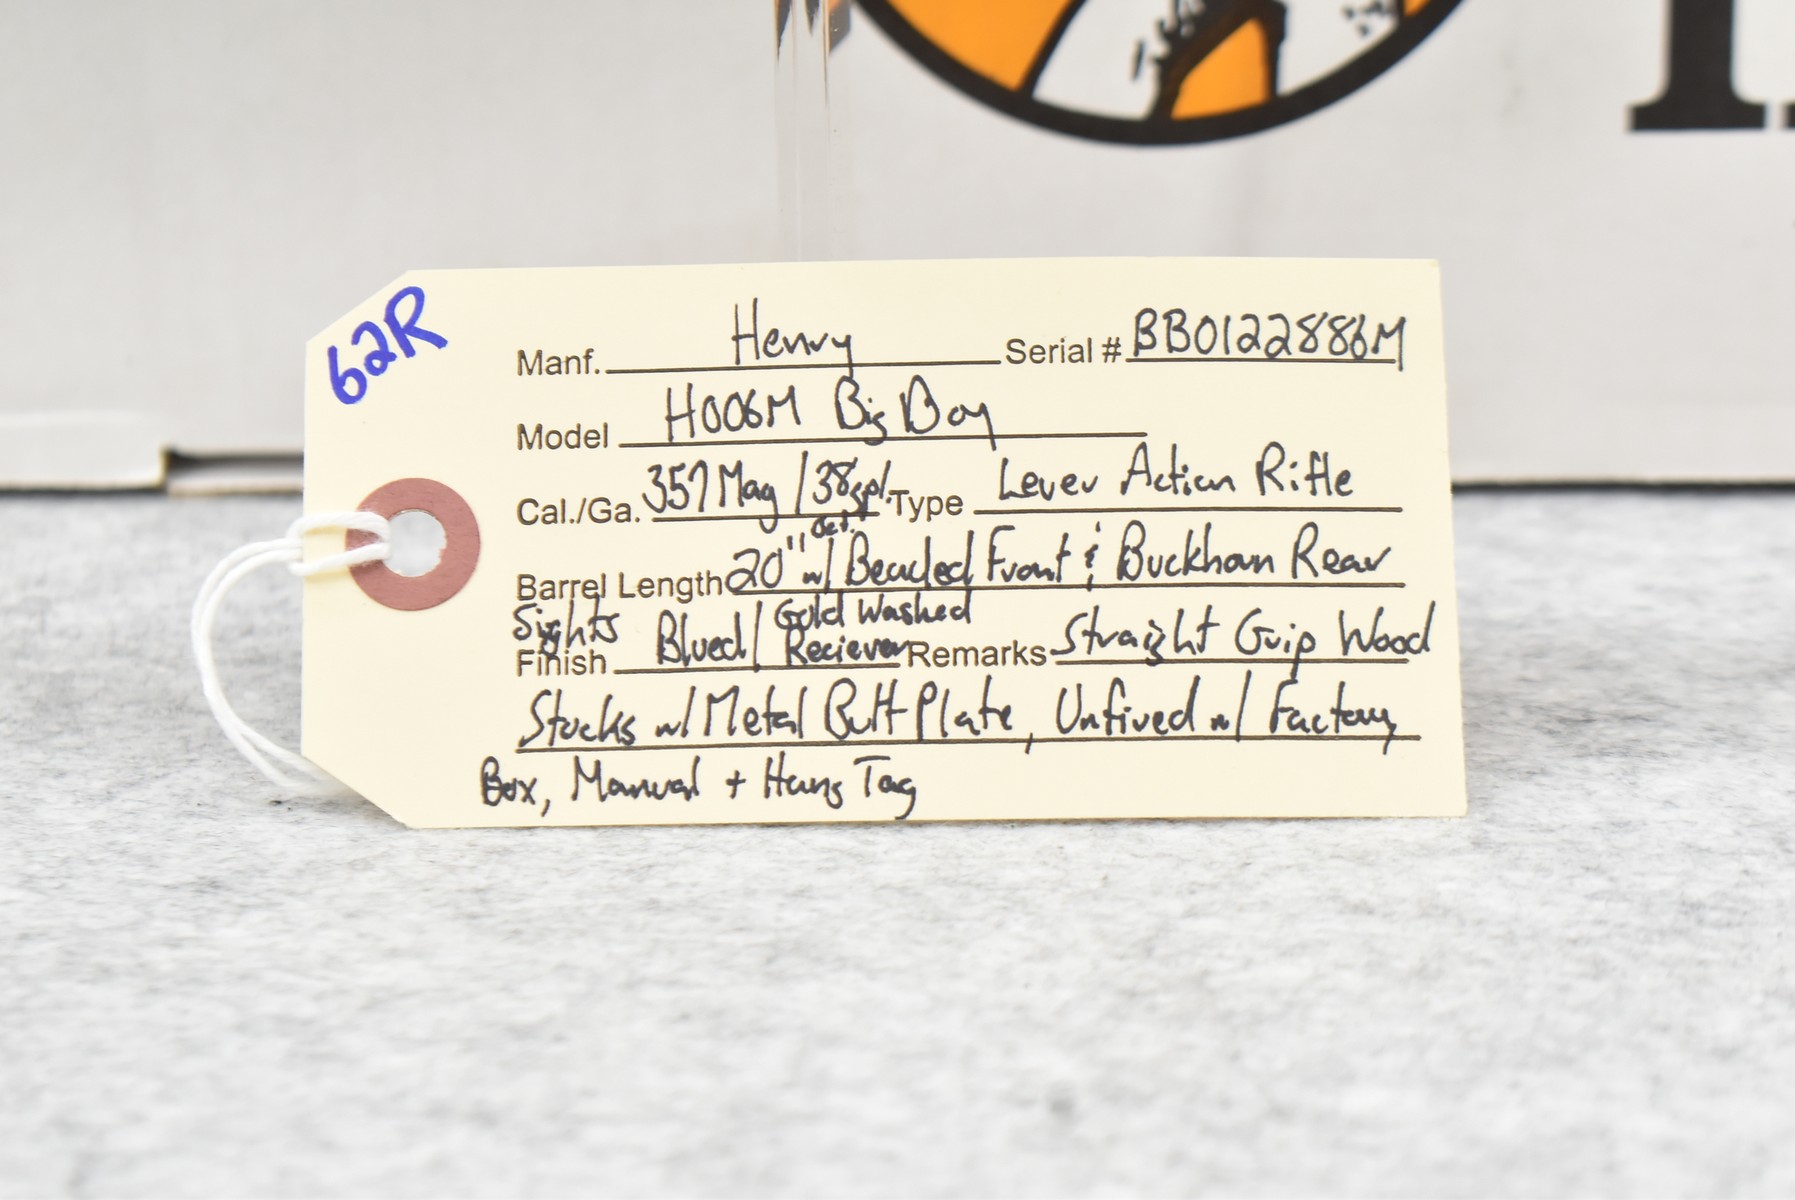 62R
Manf. Henry Serial # BB0122886M
Model H006M Big Boy
Cal./Ga. 357 Mag / 38 spl. Type Lever Action Rifle
Oct.
Barrel Length 20" w/ Beaded Front & Buckhorn Rear
Sights
Gold Washed
Finish Blued / Reciever Remarks Straight Grip Wood
Stocks w/ Metal Butt Plate, Unfired w/ Factory
Box, Manual + Hang Tag